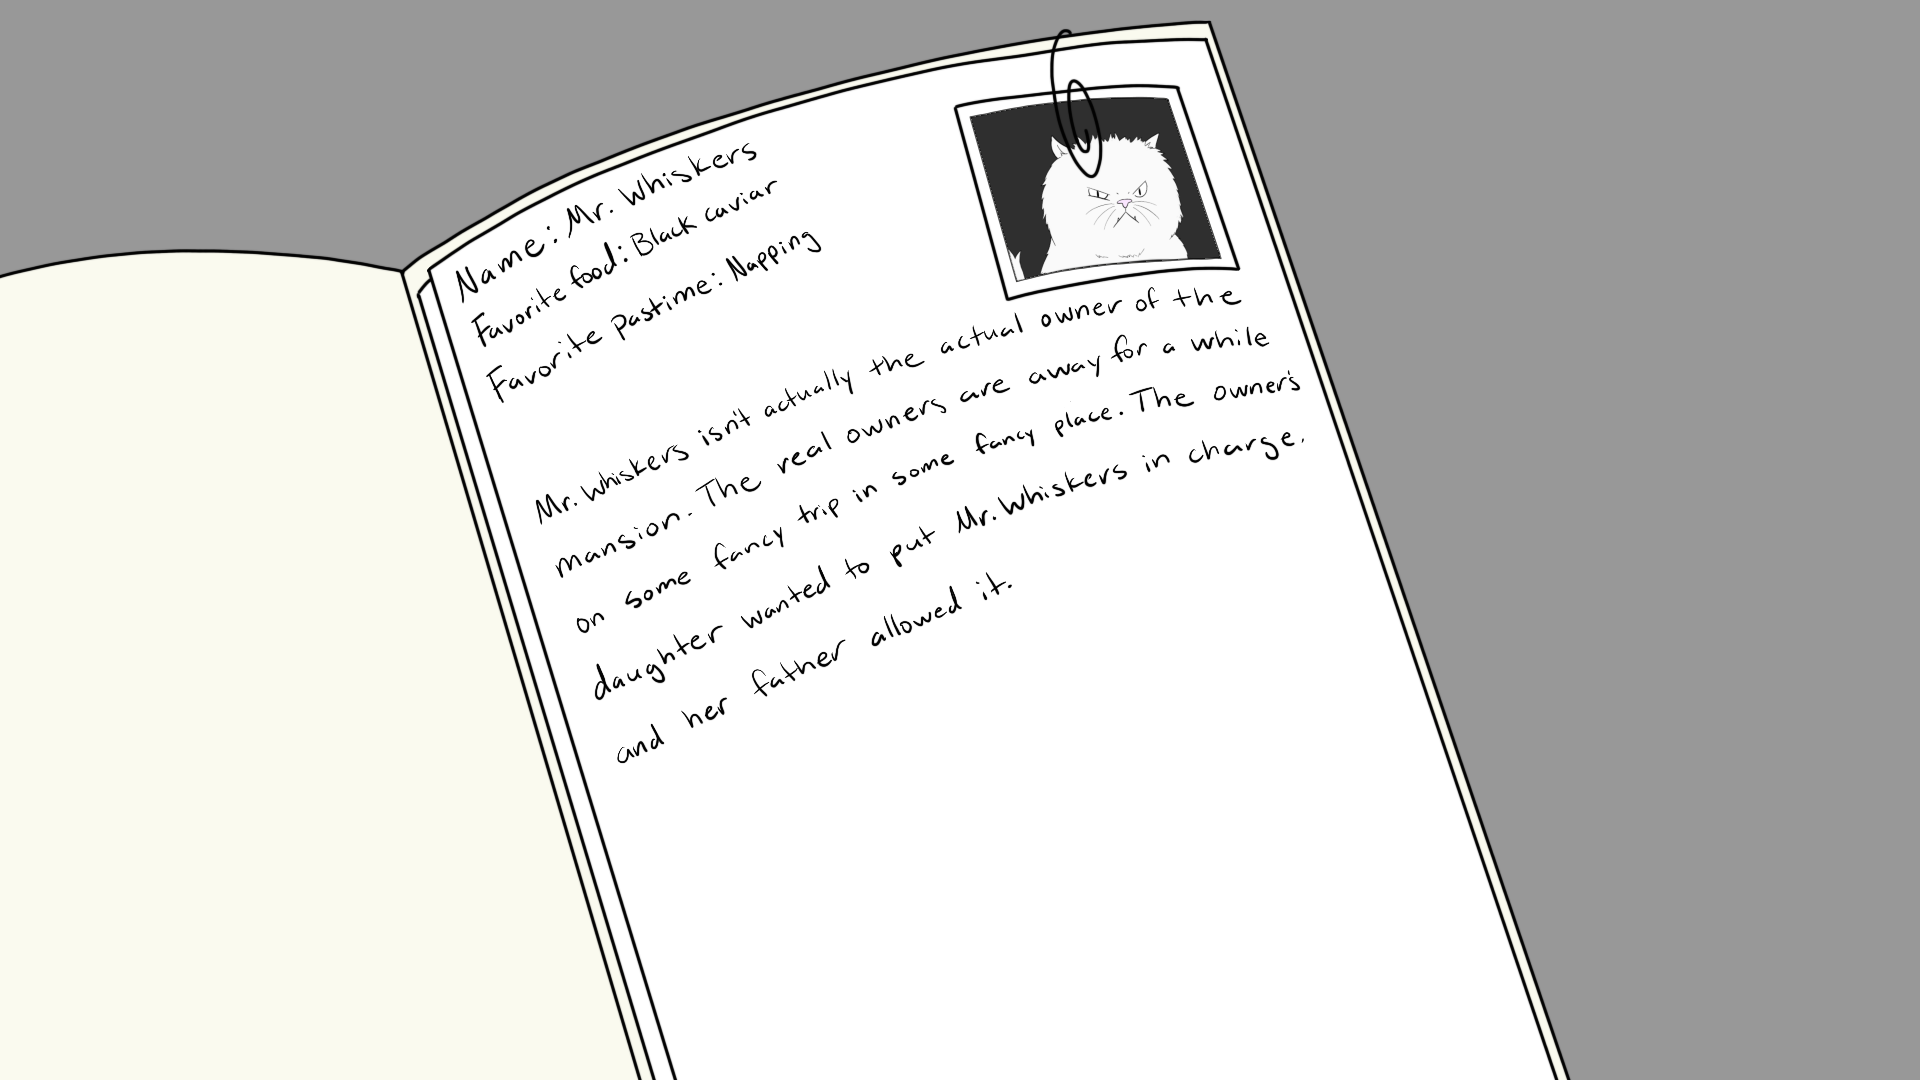 Name: Mr. Whiskers
Favorite food: Black caviar
Favorite pastime: Napping
Mr. Whiskers isn't actually the actual owner of the
mansion. The real owners are away for a while
on some fancy trip in some fancy place. The owner's
daughter wanted to put Mr. Whiskers in charge.
and her father allowed it.